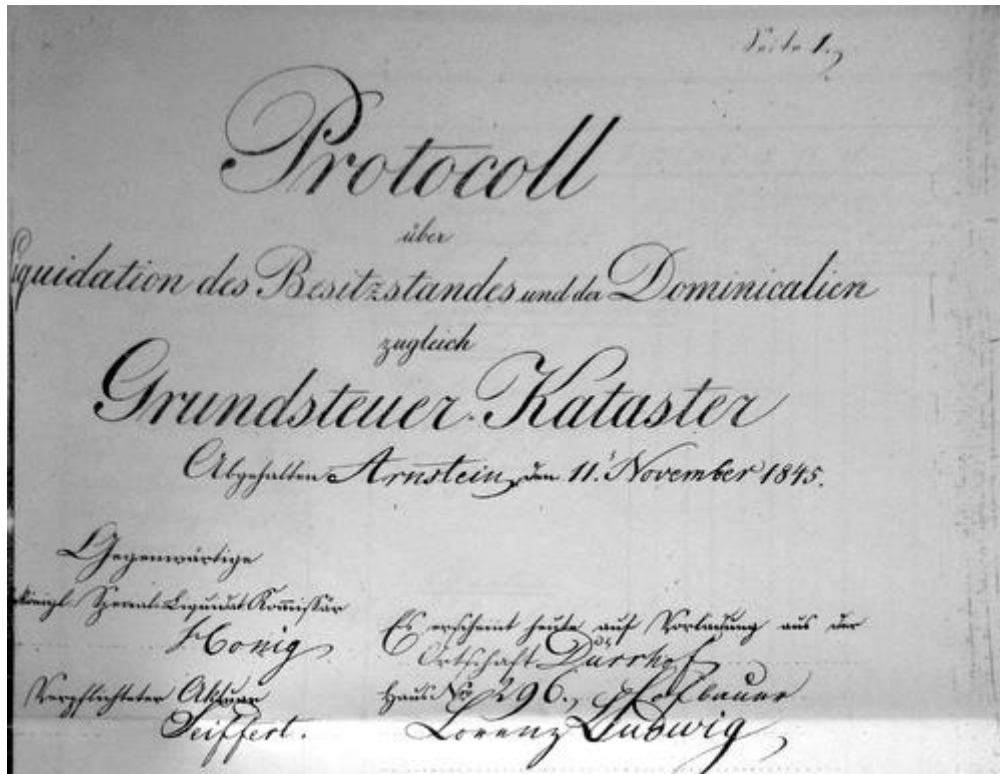 Seite 1.
Protocoll
über
Liquidation des Besitzstandes und der Dominicalien
zugleich
Grundsteuer-Kataster
Abgehalten Arnstein, den 11. November 1845.
Gegenwärtige
Königl. Spezial-Liquidat. Kommissär
Honig
Verpflichteter Aktuar
Seiffert.
Es erscheint heute auf Vorladung aus der
Ortschaft Dürrhof
Haus No 296., Hofbauer
Lorenz Ludwig